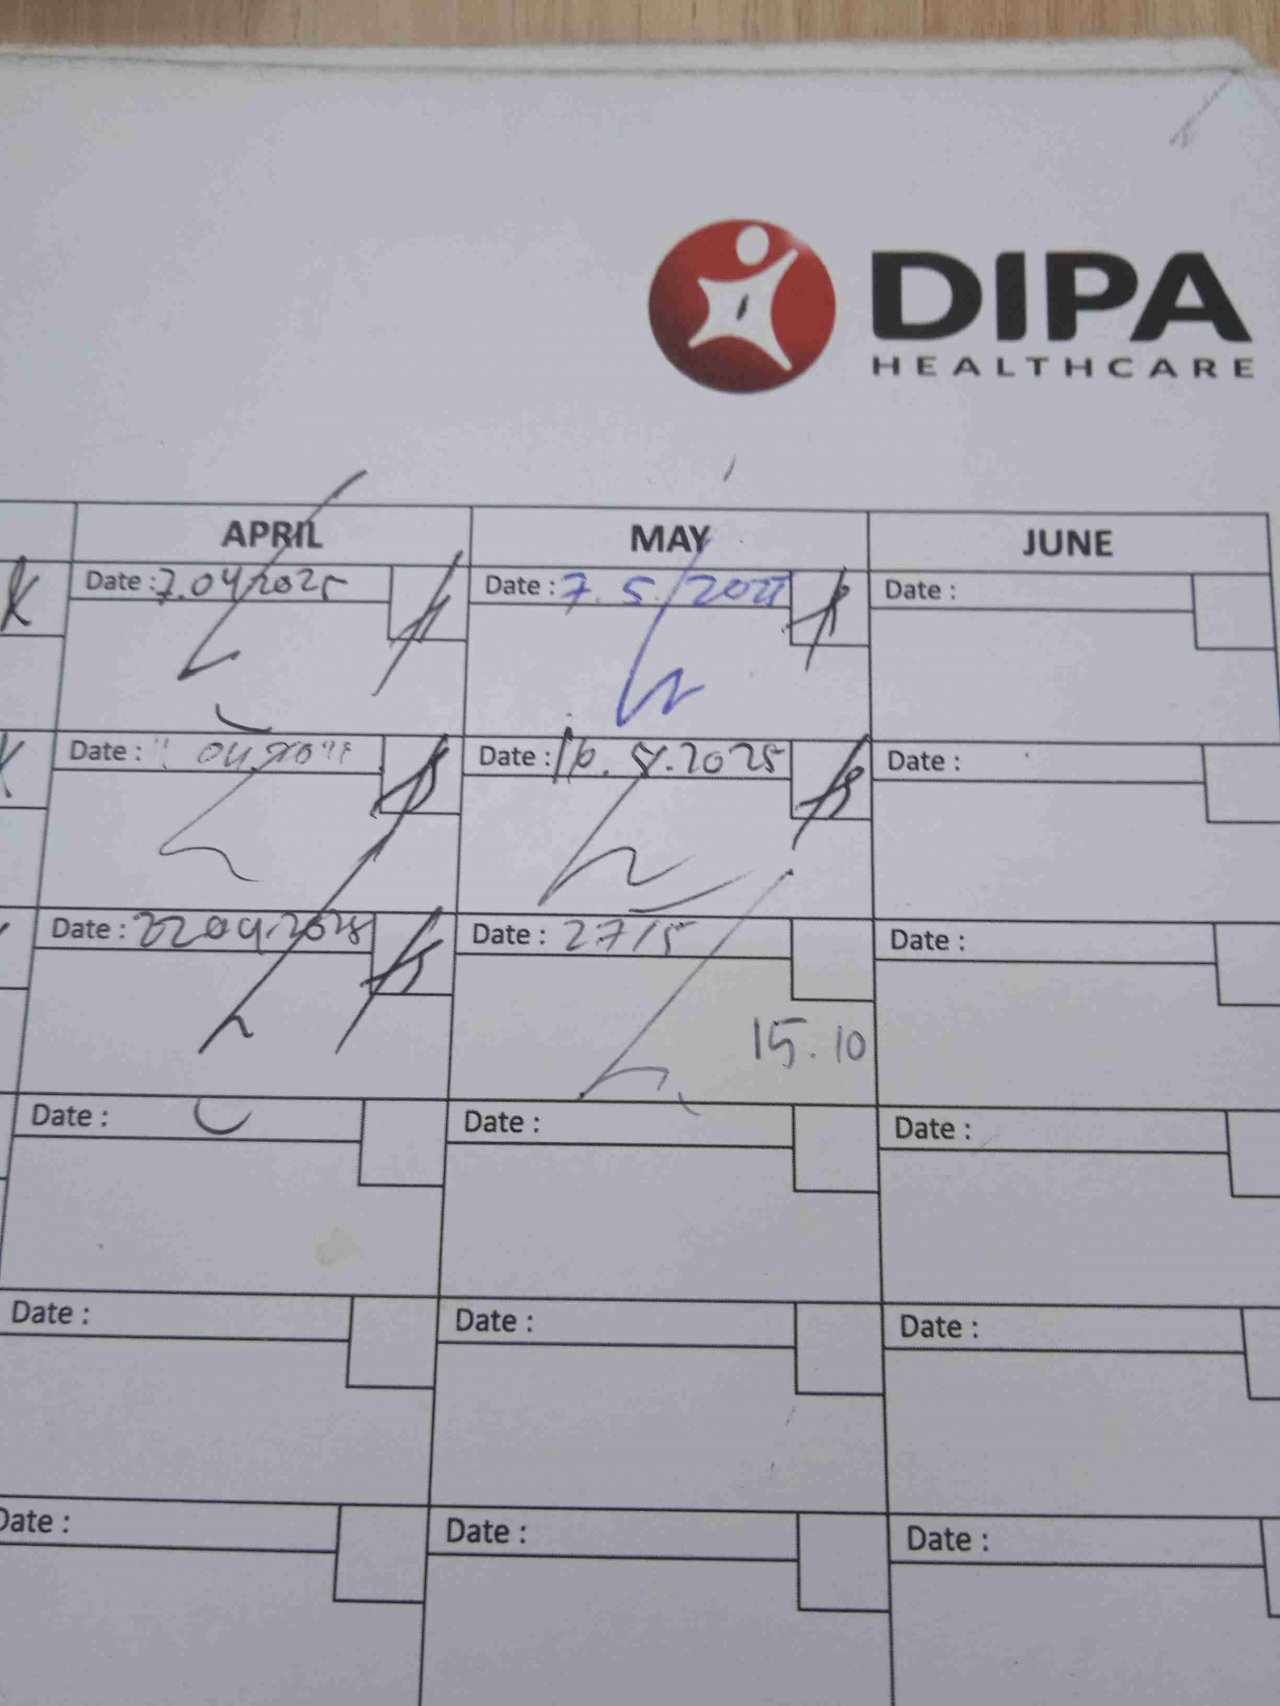 DIPA
HEALTHCARE
APRIL MAY JUNE
Date : 7.04.2025 Date : 7.5.2025 Date :
Date : 04 Date : 16.5.2025 Date :
Date : 22.04.2025 Date : 27/5 Date :
15.10
Date : Date : Date :
Date : Date : Date :
Date : Date : Date :